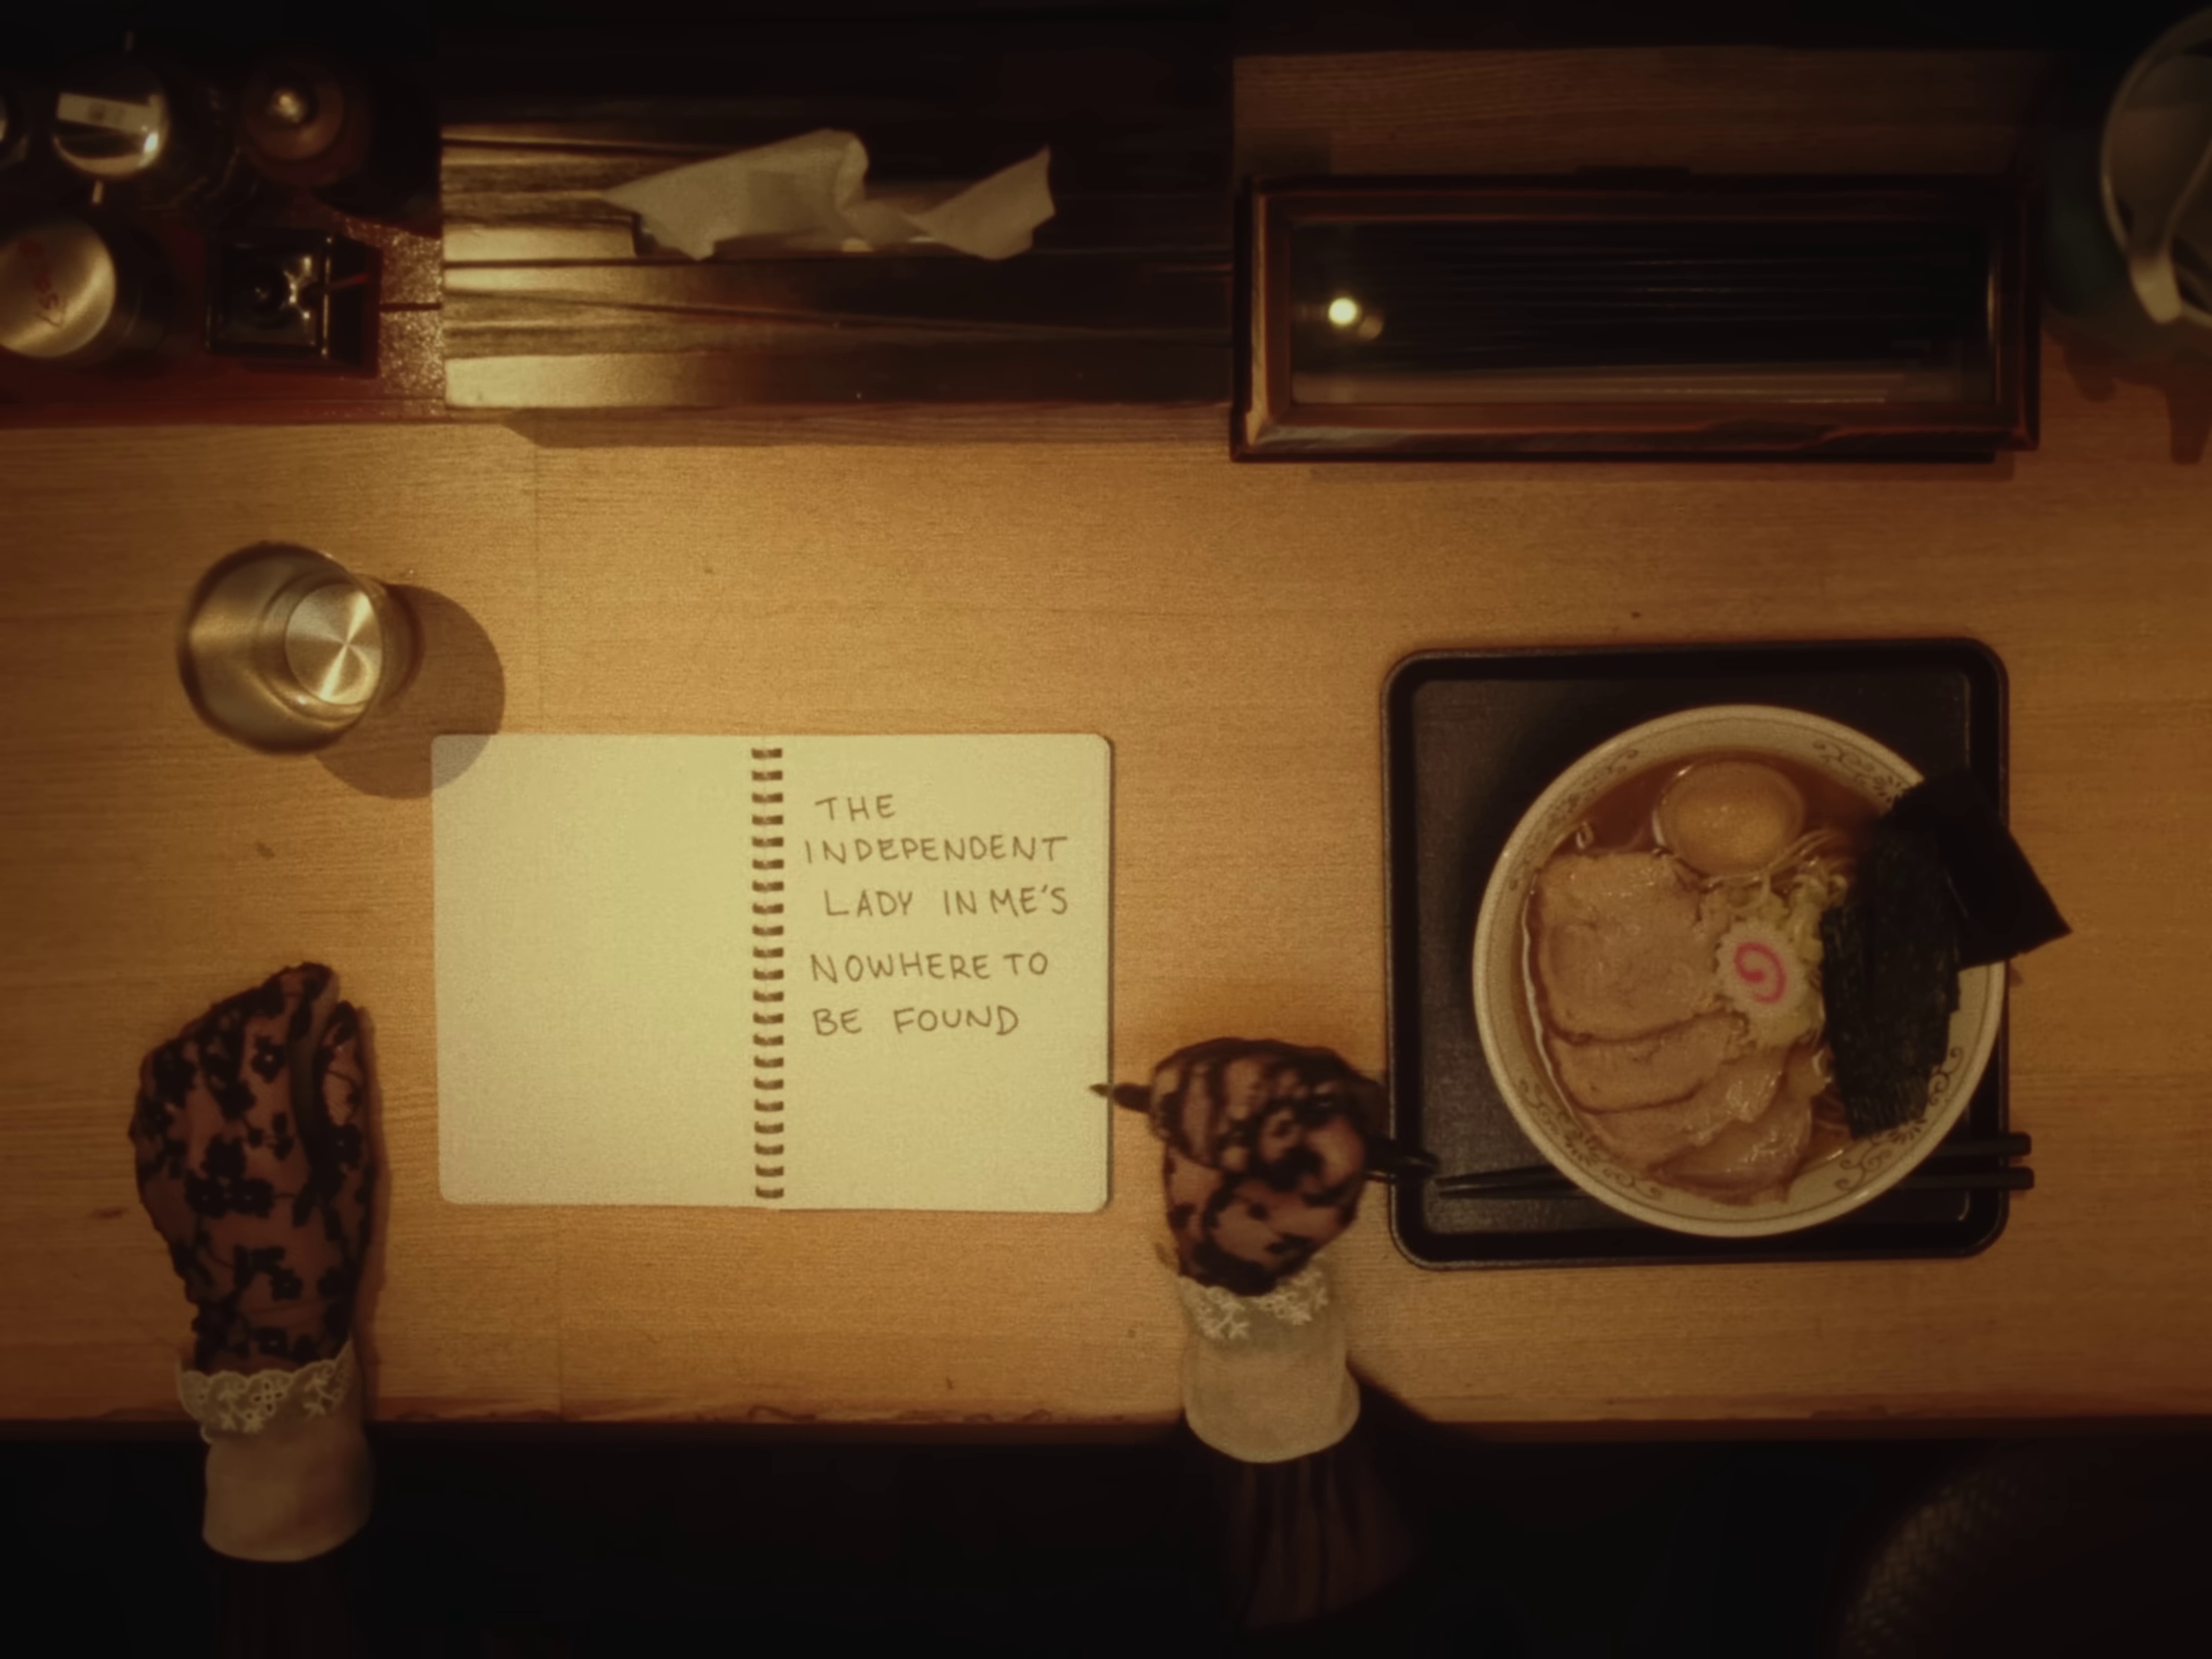 THE
INDEPENDENT
LADY IN ME'S
NOWHERE TO
BE FOUND